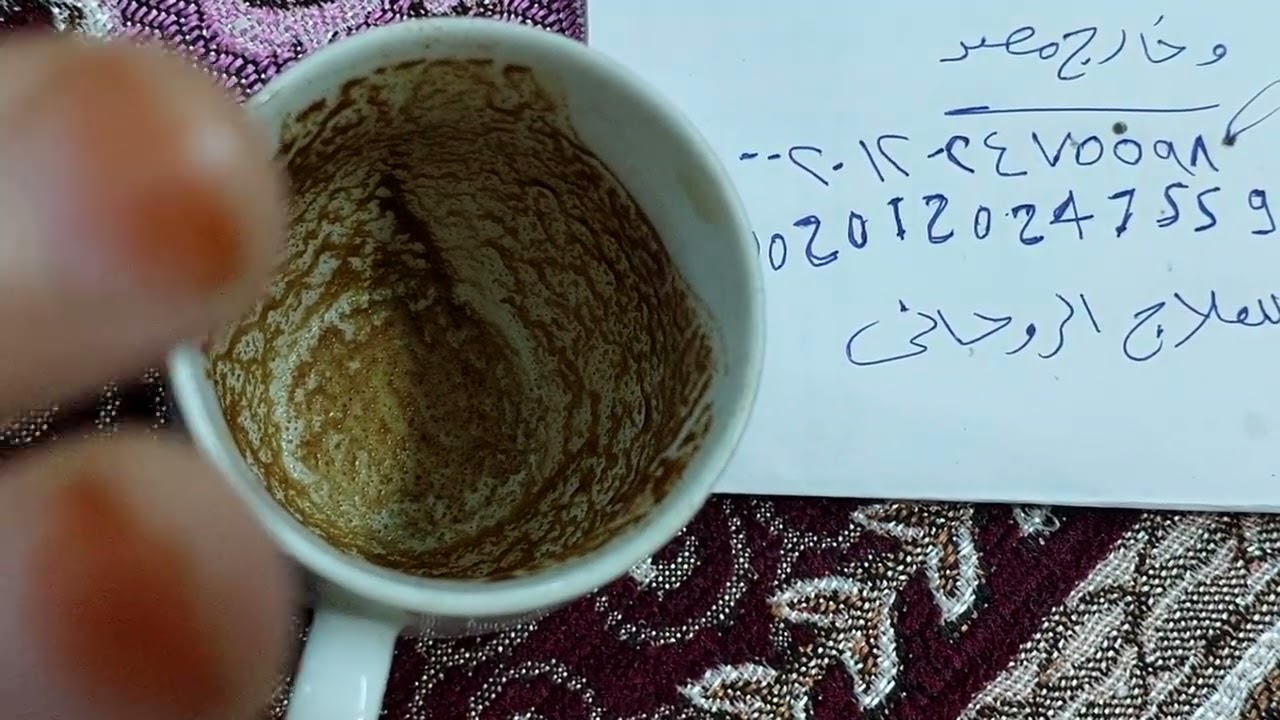 و خارج مصر
٠٠٢٠١٢٠٢٤٧٥٥٩٨
020120247559
للعلاج الروحانى